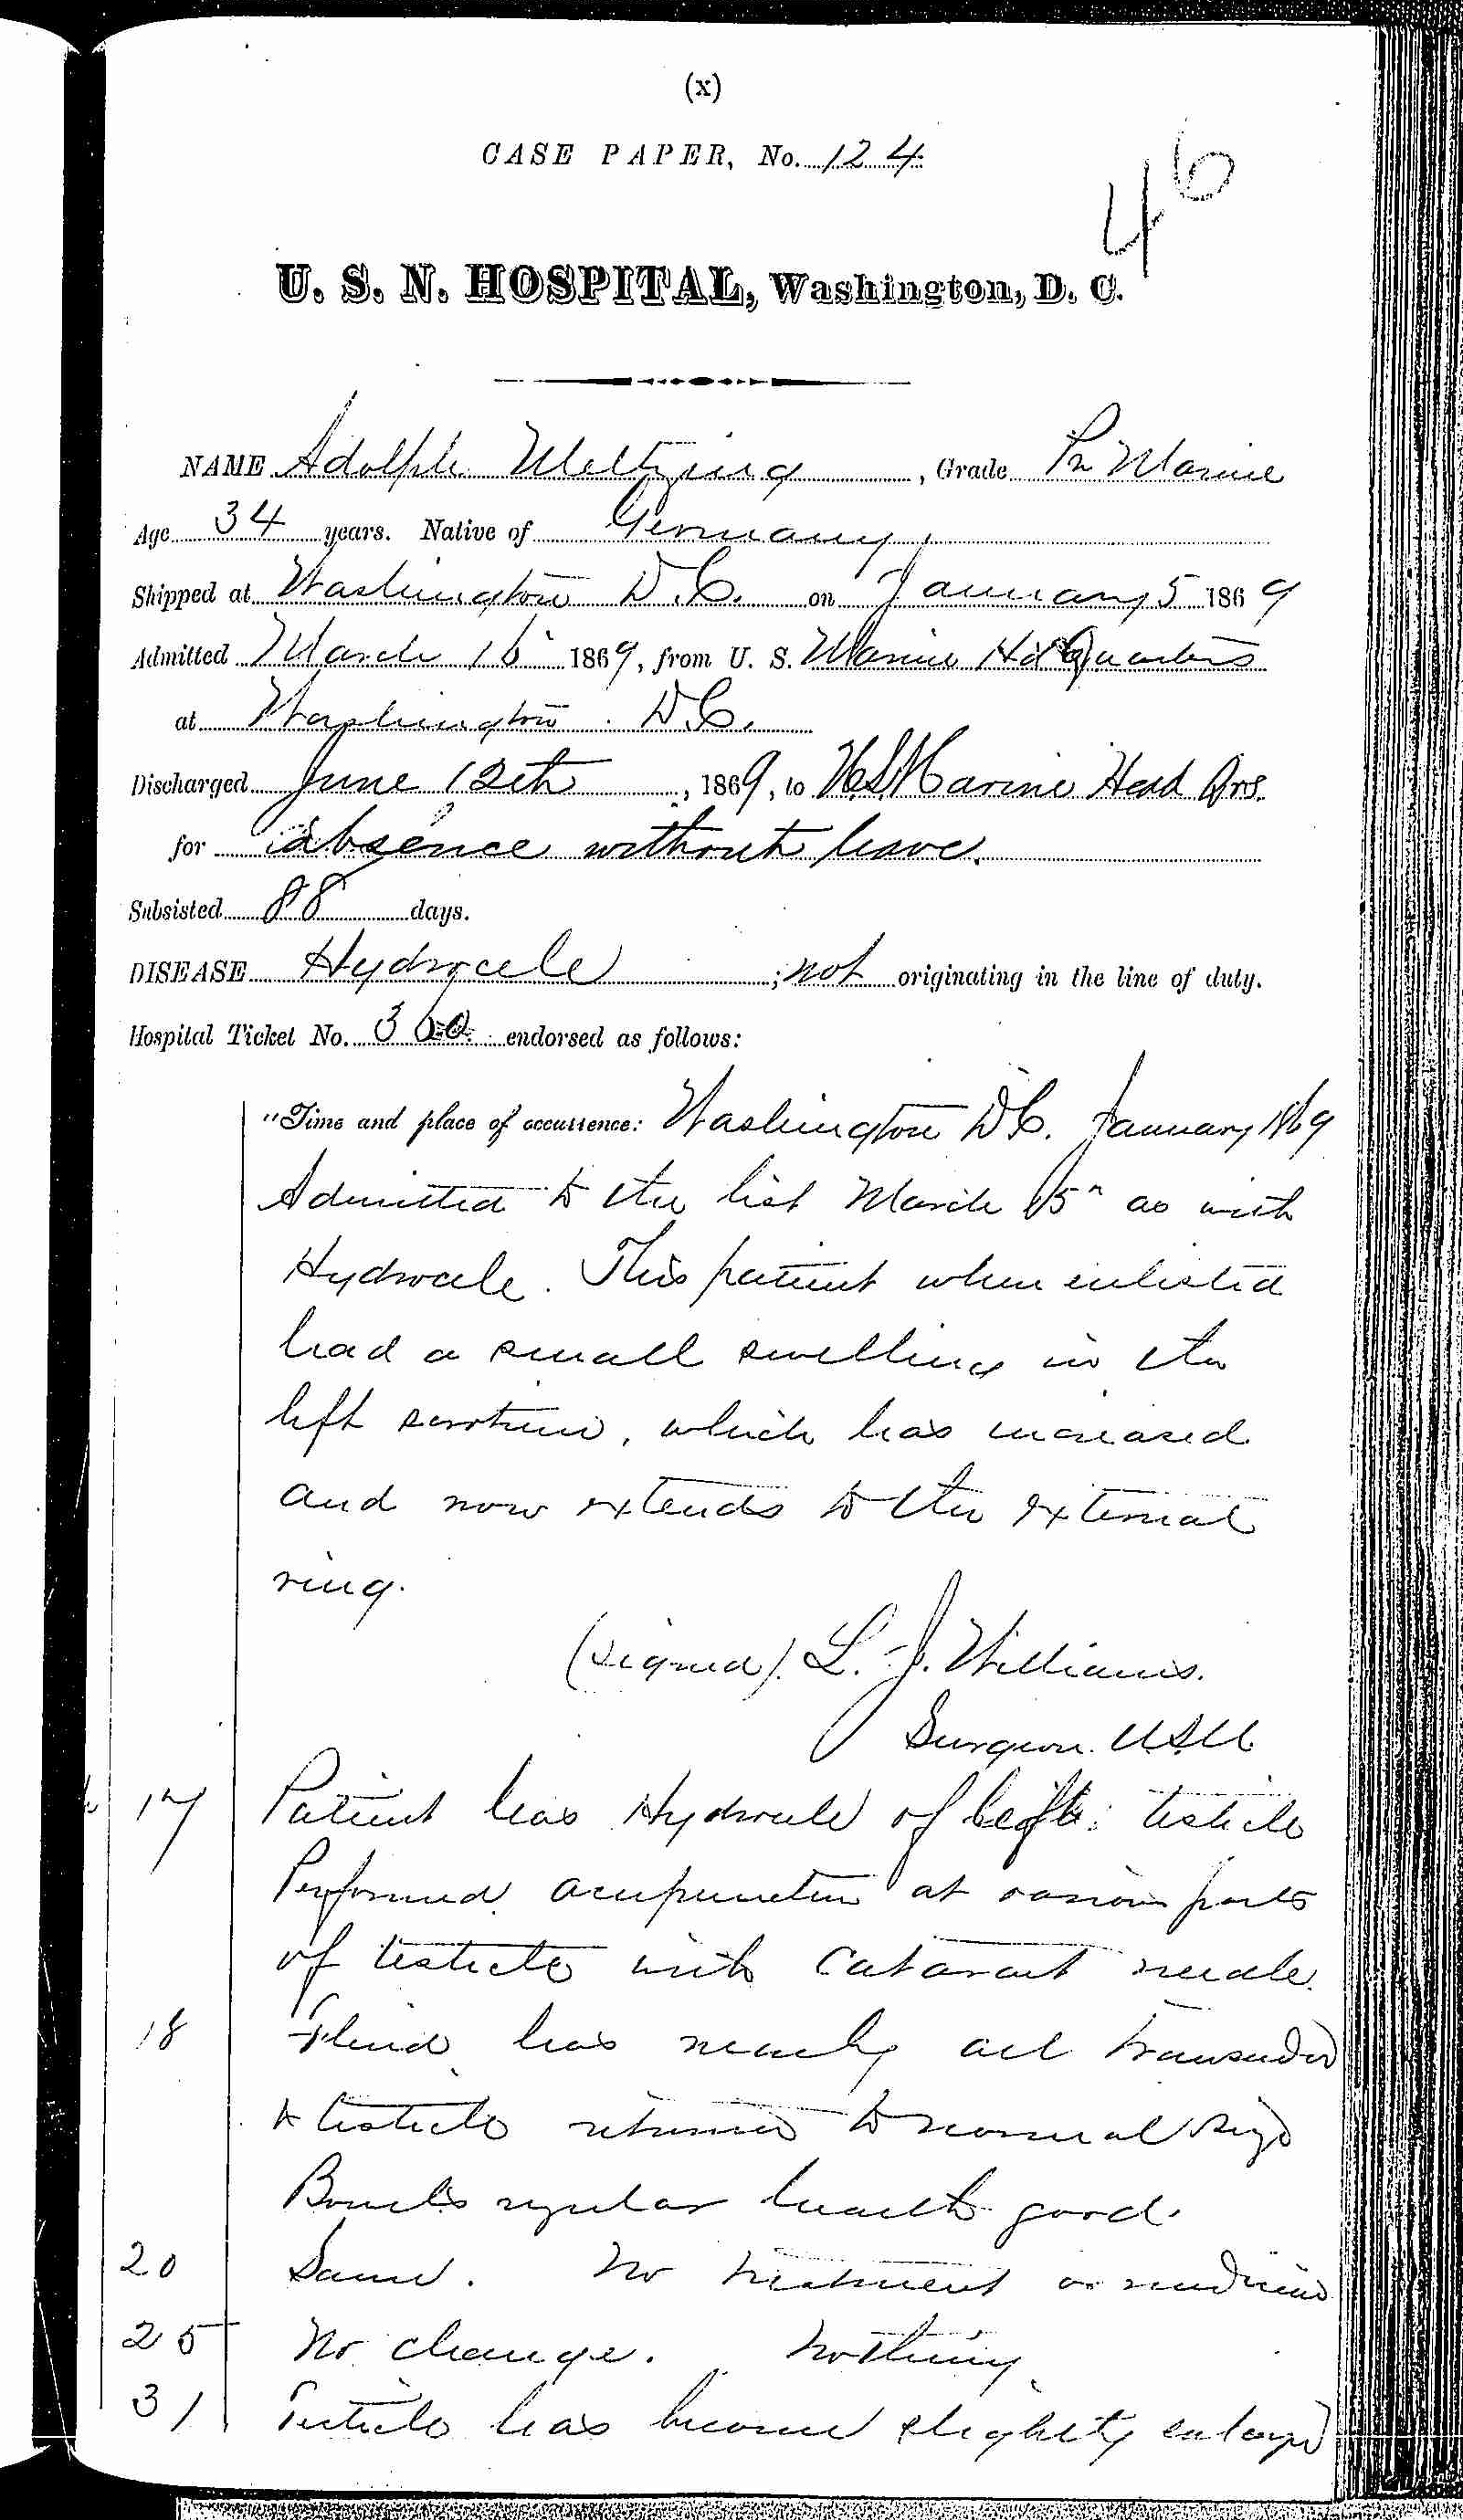 (x)
CASE PAPER, No. 124
46
U. S. N. HOSPITAL, Washington, D. C.
NAME Adolph Meltzing, Grade Pr Marine
Age 34 years. Native of Germany,
Shipped at Washington D.C. on January 5 1869
Admitted March 16 1869, from U. S. Marine Hd Quarters
at Washington. D.C.
Discharged June 12th, 1869, to U.S. Marine Head Qrs.
for absence without leave.
Subsisted 88 days.
DISEASE Hydrocele; not originating in the line of duty.
Hospital Ticket No. 360 endorsed as follows:
"Time and place of occurrence: Washington D.C. January 1869
Admitted to the list March 15" as with
Hydrocele. This patient when enlisted
had a small swelling in the
left scrotum, which has increased
and now extends to the external
ring.
(signed). L. J. Williams.
Surgeon. U.S.N.
17 Patient has Hydrocele of left testicle
Performed acupuncture at various parts
of testicle with cataract needle.
18 Fluid has nearly all transuded
& testicle returned to normal size
Bowels regular health good.
20 Same. No treatment or medicine
25 No change. Nothing
31 Testicle has become slightly enlarged